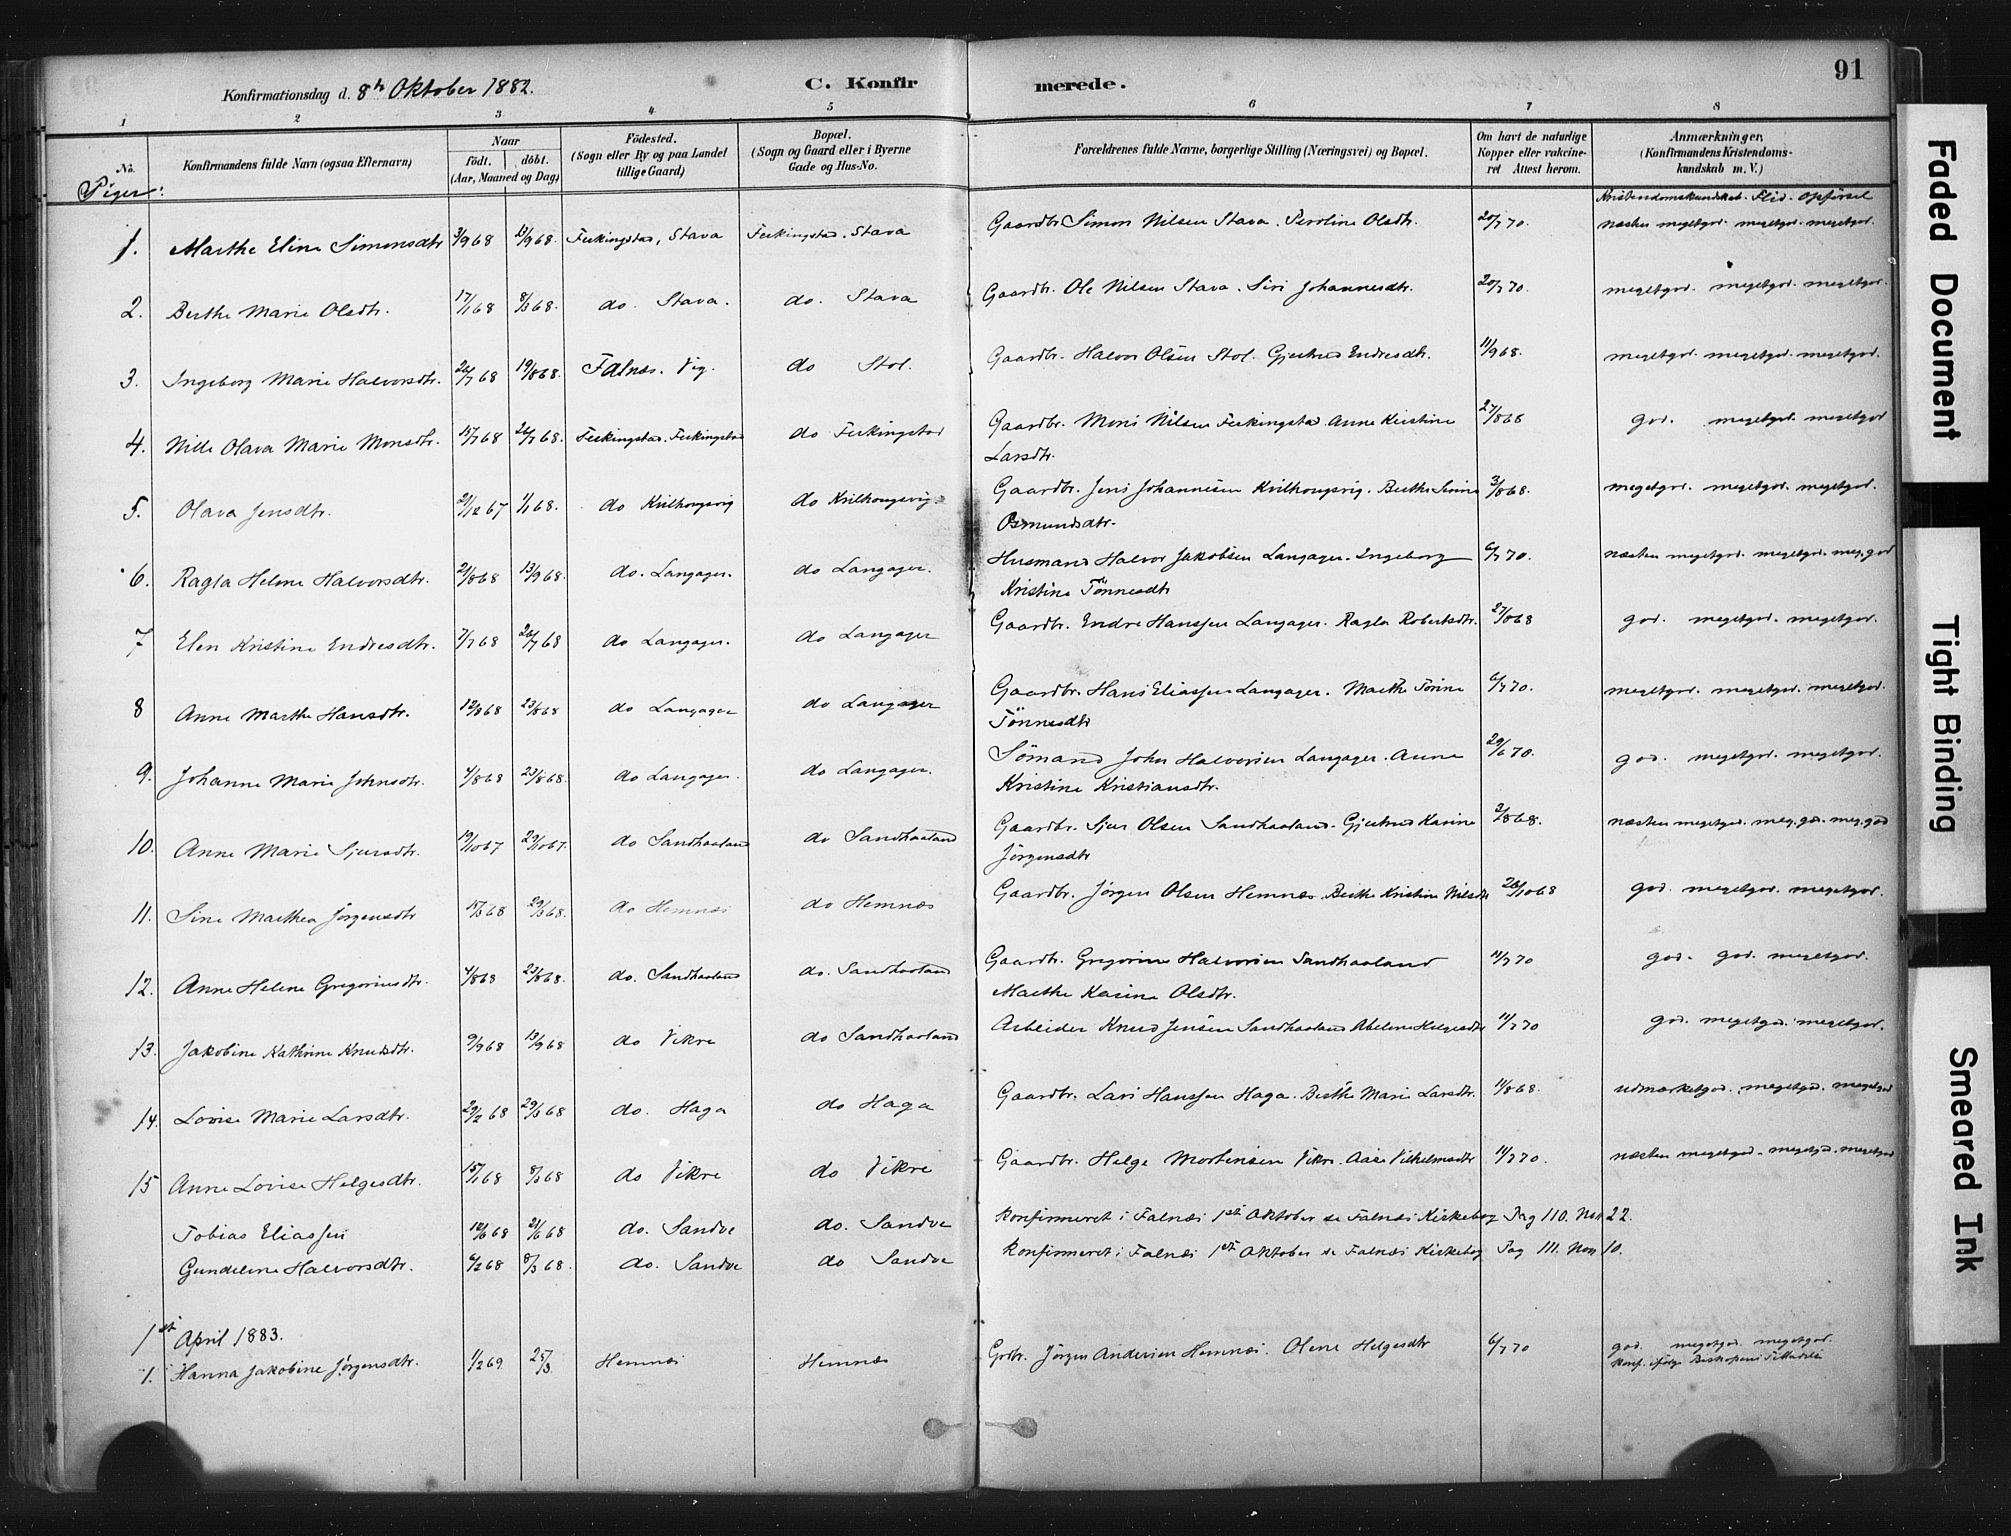 91
Konfirmationsdag d. 8de Oktober 1882. C. Konfirmerede.
1 2 3 4 5 6 7 8
No. Konfirmandens fulde Navn (ogsaa Efternavn) Naar födt. döbt. (Aar, Maaned og Dag) Födested. (Sogn eller By og paa Landet tillige Gaard) Bopæl. (Sogn og Gaard eller i Byerne Gade og Hus-No. Forældrenes fulde Navne, borgerlige Stilling (Næringsvei) og Bopæl. Om havt de naturlige Kopper eller vakcineret Attest herom. Anmærkninger, (Konfirmandens Kristendomskundskab m. V.)
Piger: Kristendomskundskab. Flid. Opførsel
1. Marthe Eline Simonsdtr 3/9 68 13/9 68. Ferkingstad, Stava Ferkingstad. Stava Gaardbr Simon Nilsen Stava. Peroline Olsdtr. 20/7 70. næsten megetgod. megetgod. megetgod.
2. Berthe Marie Olsdtr. 17/1 68 8/3 68. do. Stava. do. Stava Gaardbr. Ole Nilsen Stava. Siri Johannesdtr. 20/7 70. megetgod. megetgod. megetgod.
3. Ingeborg Marie Halvorsdtr. 26/7 68 19/8 68. Falnæs. Vig. do Stol. Gaardbr. Halvor Olsen Stol. Gjertrud Endresdtr. 11/9 68. megetgod. megetgod. megetgod.
4. Nille Olava Marie Monsdtr. 15/7 68 26/7 68. Ferkingstad. Ferkingstad do Ferkingstad Gaardbr. Mons Nilsen Ferkingstad Anne Kristine 27/8 68 god. megetgod. megetgod
Larsdtr.
5. Olava Jensdtr. 21/12 67 1/1 68. do Kvilhougsvig do Kvilhougsvig. Gaardbr. Jens Johannesen Kvilhougsvig. Berthe Serine 3/8 68. megetgod. megetgod. megetgod.
Osmundsdtr.
6. Ragla Helene Halvorsdtr. 21/8 68 13/9 68. do. Langager. do Langager. Husmand Halvor Jakobsen Langager. Ingeborg 6/7 70. næsten megetgod. megetgod. meg. god
Kristine Tönnesdtr
7 Elen Kristine Endresdtr. 7/7 68 26/7 68 do Langager. do Langager Gaardbr. Endre Hanssen Langager. Ragla Robertsdtr. 27/8 68 god. megetgod. megetgod.
8 Anne Marthe Hansdtr. 12/8 68 23/8 68 do Langager do Langager Gaardbr. Hans Eliassen Langager. Marthe Torine 6/7 70. megetgod. megetgod. megetgod.
Tönnesdtr
9. Johanne Marie Johnsdtr. 4/8 68 23/8 68. do Langager. do Langager. Sömand John Halvorsen Langager. Anne 29/6 70. god. megetgod. megetgod.
Kristine Kristiansdtr.
10. Anne Marie Sjursdtr. 19/10 67 27/10 67. do Sandhaaland do Sandhaaland Gaardbr. Sjur Olsen Sandhaaland. Gjertrud Karine 3/8 68. næsten megetgod. meg. god. meg. god
Jörgensdtr
11. Sine Marthea Jørgensdtr 15/3 68 29/3 68. do Hemnæs do Hemnæs Gaardbr. Jørgen Olsen Hemnæs. Berthe Kristine Nilsdtr 26/10 68 god megetgod. megetgod.
12. Anne Helene Gregoriusdtr. 4/8 68 23/8 68. do. Sandhaaland do. Sandhaaland Gaardbr. Gregorius Halvorsen Sandhaaland 11/7 70 god. god. megetgod.
Marthe Karine Olsdtr.
13. Jakobine Kathrine Knudsdtr. 9/9 68 13/9 68 do Vikre do Sandhaaland Arbeider Knud Jensen Sandhaaland Abelone Helgesdtr 11/7 70 god. megetgod. megetgod.
14. Lovise Marie Larsdtr. 29/2 68 29/3 68 do. Haga do Haga Gaardbr. Lars Hanssen Haga. Berthe Marie Larsdtr. 11/8 68. udmærketgod. megetgod. megetgod
15 Anne Lovise Helgesdtr. 15/1 68 8/3 68 do Vikre do Vikre Gaardbr. Helge Mortensen Vikre. Aase Vilhelmsdtr 11/7 70. næsten megetgod. megetgod. megetgod
Tobias Eliassen 10/6 68 21/6 68 do. Sandve do. Sandve konfirmeret i Falnæs 1ste Oktober se Falnæs Kirkebog Pag 110. No 22.
Gundeline Halvorsdtr. 6/2 68 8/3 68. do. Sandve do Sandve konfirmeret i Falnæs 1ste Oktober se Falnæs Kirkebog Pag 111. No 10.
1ste April 1883.
1. Hanna Jakobine Jørgensdtr. 1/2 69 25/3. Hemnæs Hemnæs Grdbr. Jörgen Andersen Hemnæs. Olene Helgesdtr 6/7 70 god. megetgod. megetgod.
konf. ifølge Biskopens Tilladelse
Faded Document
Tight Binding
Smeared Ink